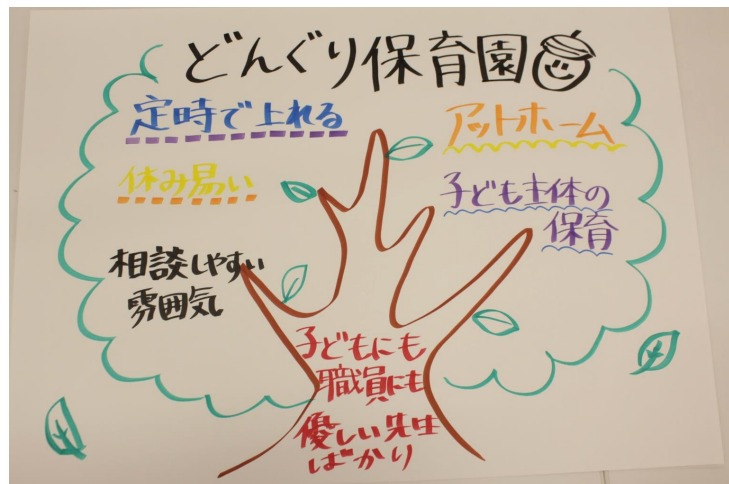 どんぐり保育園
定時で上れる
アットホーム
休み易い
子ども主体の
保育
相談しやすい
雰囲気
子どもにも
職員にも
優しい先生
ばかり